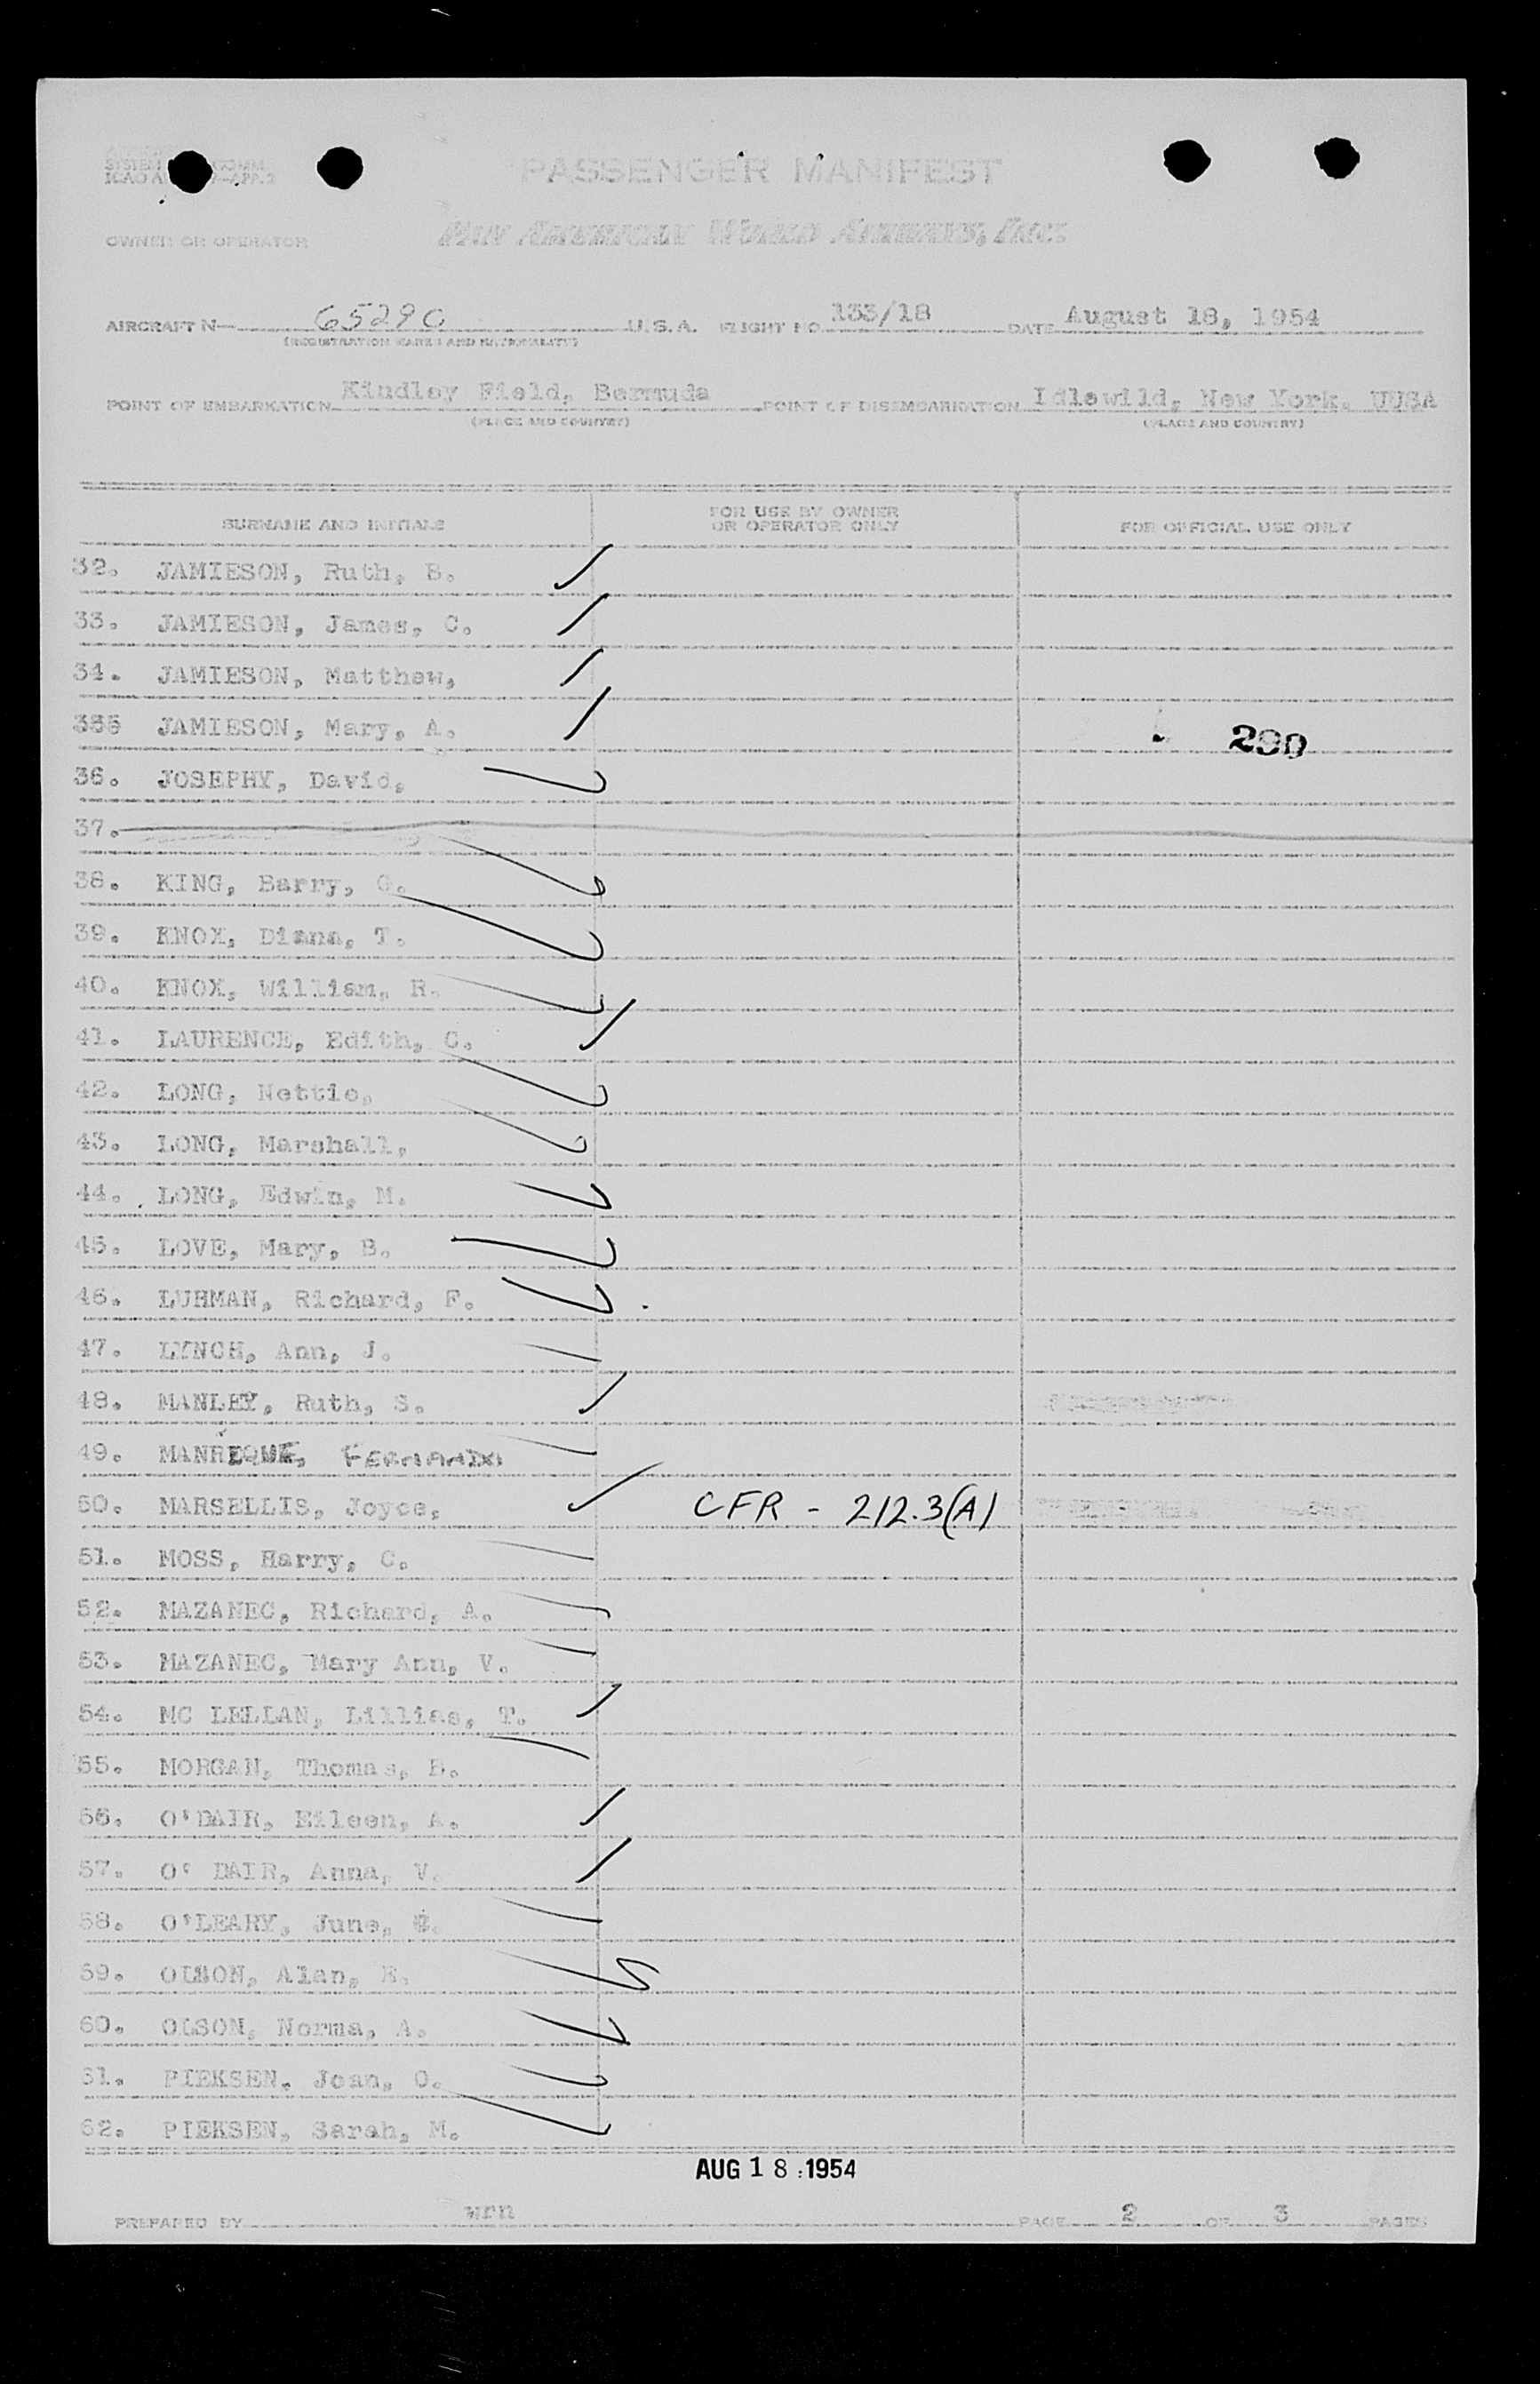 PASSENGER MANIFEST
OWNER OR OPERATOR PAN AMERICAN WORLD AIRWAYS, INC.
AIRCRAFT N— 65290 U.S.A. FLIGHT NO 133/18 DATE August 18, 1954
(REGISTRATION MARKS AND NATIONALITY)
POINT OF EMBARKATION Kindley Field, Bermuda POINT OF DISEMBARKATION Idlewild, New York. UUSA
(PLACE AND COUNTRY) (PLACE AND COUNTRY)
SURNAME AND INITIALS FOR USE BY OWNER OR OPERATOR ONLY FOR OFFICIAL USE ONLY
32. JAMIESON, Ruth, B.
33. JAMIESON, James, C.
34. JAMIESON, Matthew,
335 JAMIESON, Mary, A. 290
36. JOSEPHY, David,
37.
38. KING, Barry, G.
39. KNOX, Diana, T.
40. KNOX, William, R.
41. LAURENCE, Edith, C.
42. LONG, Nettie,
43. LONG, Marshall,
44. LONG, Edwin, M.
45. LOVE, Mary, B.
46. LUHMAN, Richard, F.
47. LYNCH, Ann, J.
48. MANLEY, Ruth, S.
49. MANREQUE, FERNANDO
50. MARSELLIS, Joyce, CFR - 212.3(A)
51. MOSS, Harry, C.
52. MAZANEC, Richard, A.
53. MAZANEC, Mary Ann, V.
54. MC LELLAN, Lillias, T.
55. MORGAN, Thomas, B.
56. O'DAIR, Eileen, A.
57. O' DAIR, Anna, V.
58. O'LEARY, June, C.
59. OLSON, Alan, E.
60. OLSON, Norma, A.
61. PIEKSEN, Joan, O.
62. PIEKSEN, Sarah, M.
AUG 18 1954
PREPARED BY wrn PAGE 2 OF 3 PAGES